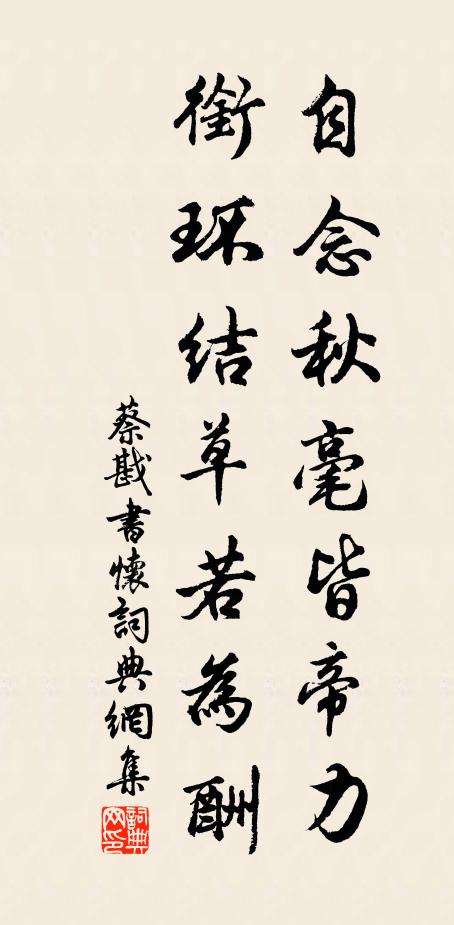 自念秋毫皆帝力
銜环結草若為酬
蔡戡書懷詞典網集
詞典
网印